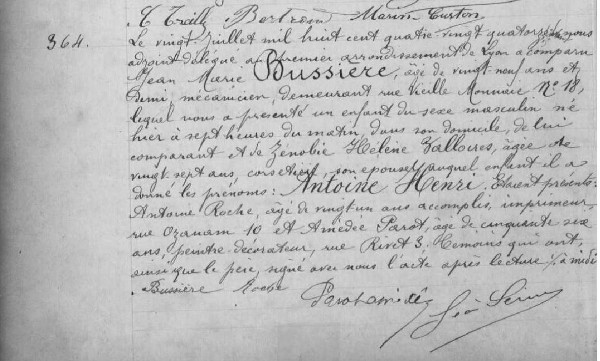 Bertrand Marius Curton
364.
Le vingt Juillet mil huit cent quatre vingt quatorze, nous
adjoint délégué au premier arrondissement de Lyon a comparu
Jean Marie Bussière, âgé de vingt neuf ans et
demi, mécanicien, demeurant rue Vieille Monnaie No 18,
lequel nous a présenté un enfant du sexe masculin né
hier à sept heures du matin, dans son domicile, de lui
comparant et de Zénobie Hélène Valloires, âgée de
vingt sept ans, son épouse, auquel enfant il a
donné les prénoms: Antoine Henri. Étaient présents:
Antoine Roche, âgé de vingt un ans accomplis, imprimeur,
rue Ozanam 10 et Amédée Parot, âgé de cinquante six
ans, peintre décorateur, rue Rivet 3. Témoins qui ont,
ainsi que le père, signé avec nous l'acte après lecture à midi
Bussière Roche Parot amédée